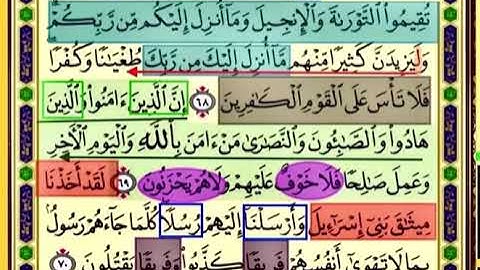 تُقِيمُوا۟ ٱلتَّوْرَىٰةَ وَٱلْإِنجِيلَ وَمَآ أُنزِلَ إِلَيْكُم مِّن رَّبِّكُمْ ۗ
وَلَيَزِيدَنَّ كَثِيرًا مِّنْهُم مَّآ أُنزِلَ إِلَيْكَ مِن رَّبِّكَ طُغْيَـٰنًا وَكُفْرًا ۖ
فَلَا تَأْسَ عَلَى ٱلْقَوْمِ ٱلْكَـٰفِرِينَ ٦٨ إِنَّ ٱلَّذِينَ ءَامَنُوا۟ وَٱلَّذِينَ
هَادُوا۟ وَٱلصَّـٰبِـُٔونَ وَٱلنَّصَـٰرَىٰ مَنْ ءَامَنَ بِٱللَّهِ وَٱلْيَوْمِ ٱلْـَٔاخِرِ
وَعَمِلَ صَـٰلِحًا فَلَا خَوْفٌ عَلَيْهِمْ وَلَا هُمْ يَحْزَنُونَ ٦٩ لَقَدْ أَخَذْنَا
مِيثَـٰقَ بَنِىٓ إِسْرَٰٓءِيلَ وَأَرْسَلْنَآ إِلَيْهِمْ رُسُلًا ۖ كُلَّمَا جَآءَهُمْ رَسُولٌۢ
بِمَا لَا تَهْوَىٰٓ أَنفُسُهُمْ فَرِيقًا كَذَّبُوا۟ وَفَرِيقًا يَقْتُلُونَ ٧٠